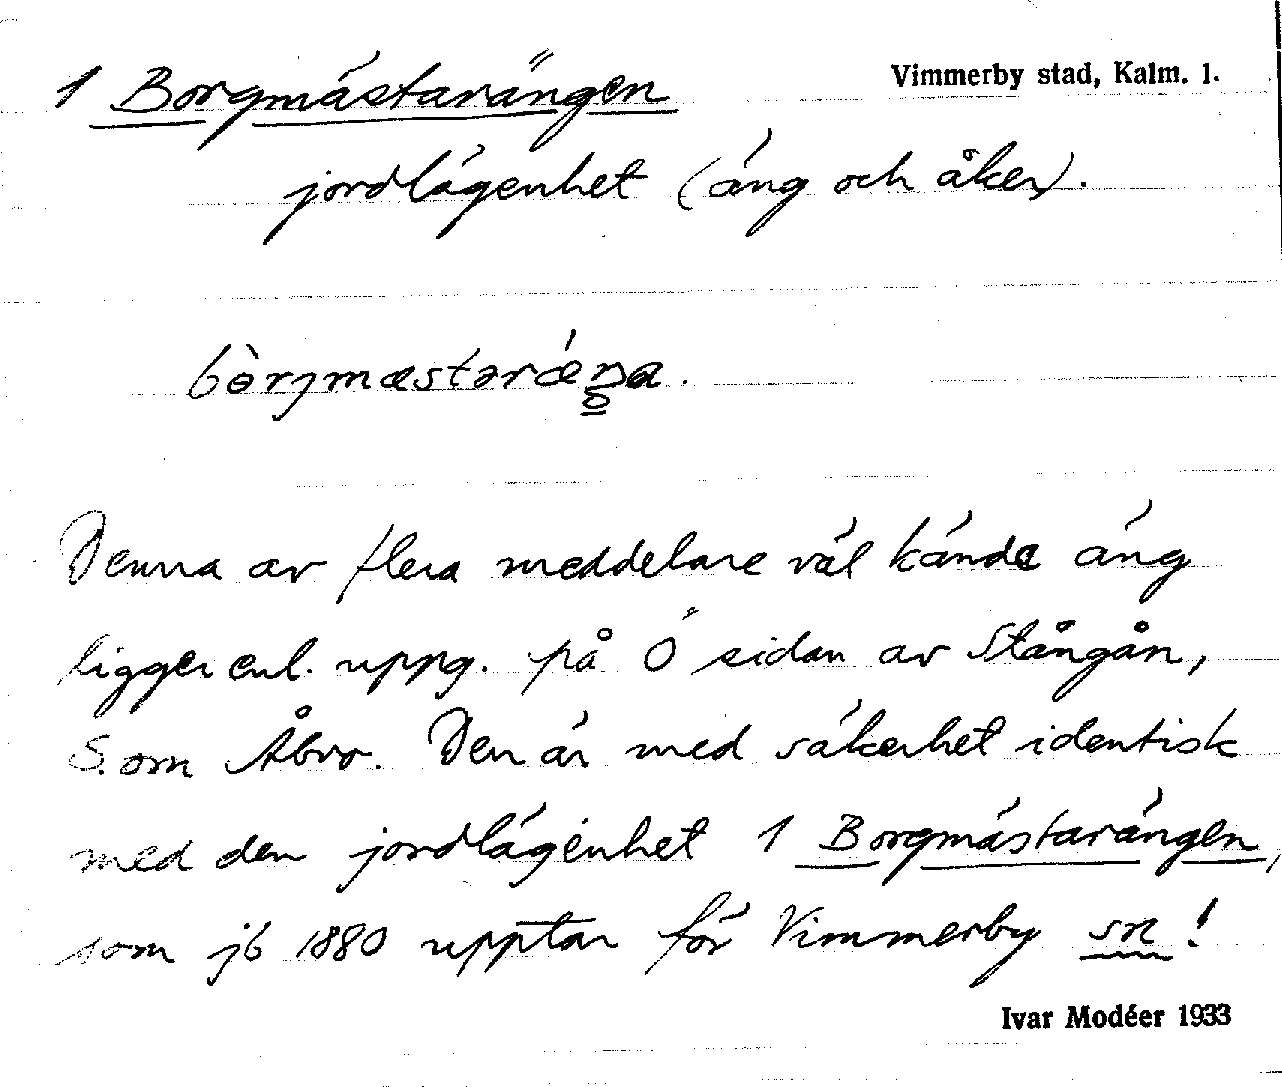 1 Borgmästarängen
Vimmerby stad, Kalm. l.
jordlägenhet (äng och åker).
Denna av flera meddelare väl kände äng
ligger enl. uppg. på Ö sidan av Stångån,
S. om Åbro. Den är med säkerhet identisk
med den jordlägenhet 1 Borgmästarängen,
som jb 1880 upptar för Vimmerby sn!
Ivar Modéer 1933